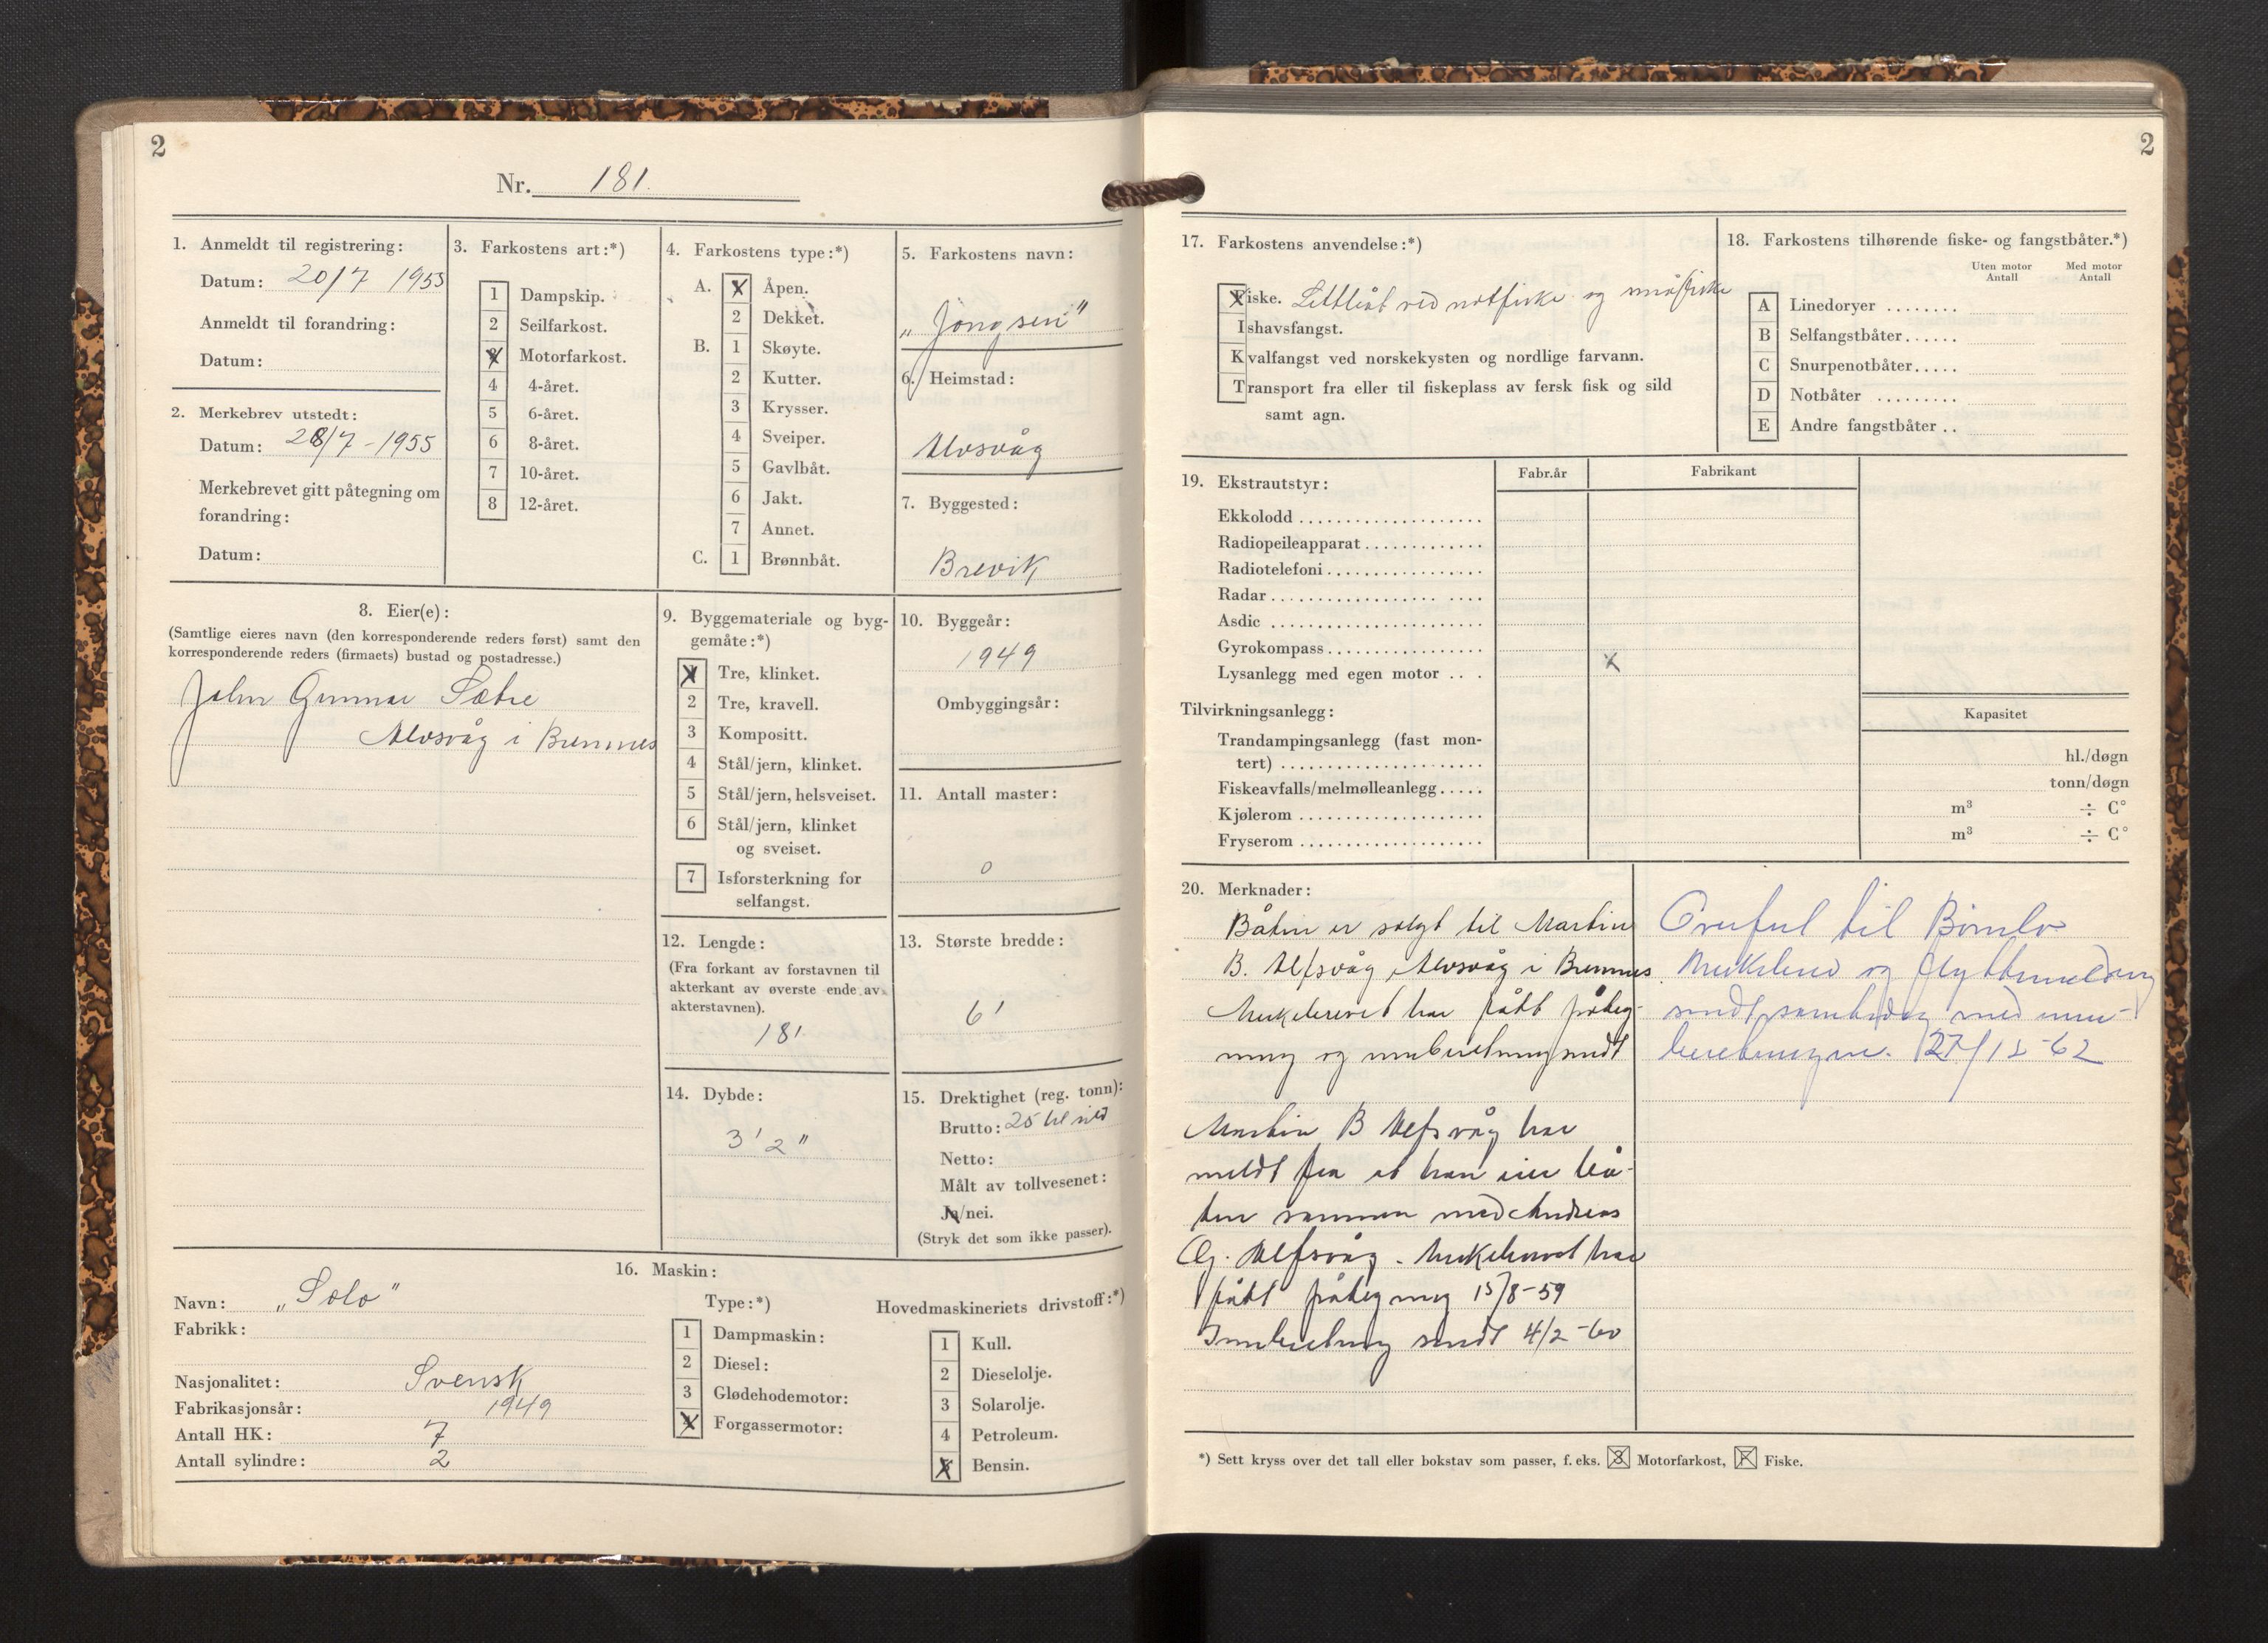 2
Nr. 181.
1. Anmeldt til registrering:
Datum: 20/7 1953
Anmeldt til forandring:
Datum:
2. Merkebrev utstedt:
Datum: 28/7-1955
Merkebrevet gitt påtegning om
forandring:
Datum:
3. Farkostens art:*)
1 Dampskip.
2 Seilfarkost.
X Motorfarkost.
4 4-året.
5 6-året.
6 8-året.
7 10-året.
8 12-året.
4. Farkostens type:*)
A. X Åpen.
2 Dekket.
B. 1 Skøyte.
2 Kutter.
3 Krysser.
4 Sveiper.
5 Gavlbåt.
6 Jakt.
7 Annet.
C. 1 Brønnbåt.
5. Farkostens navn:
„Jongsen"
6. Heimstad:
Alvsvåg
7. Byggested:
Brevik
8. Eier(e):
(Samtlige eieres navn (den korresponderende reders først) samt den
korresponderende reders (firmaets) bustad og postadresse.)
John Gunnar Sætre
Alvsvåg i Bremnes
9. Byggemateriale og byg-
gemåte:*)
X Tre, klinket.
2 Tre, kravell.
3 Kompositt.
4 Stål/jern, klinket.
5 Stål/jern, helsveiset.
6 Stål/jern, klinket
og sveiset.
7 Isforsterkning for
selfangst.
10. Byggeår:
1949
Ombyggingsår:
11. Antall master:
0
12. Lengde:
(Fra forkant av forstavnen til
akterkant av øverste ende av
akterstavnen).
18'
13. Største bredde:
6'
14. Dybde:
3' 2"
15. Drektighet (reg. tonn):
Brutto: 25 hl sild
Netto:
Målt av tollvesenet:
Ja/nei.
(Stryk det som ikke passer).
16. Maskin:
Navn: „Solo"
Fabrikk:
Nasjonalitet: Svensk
Fabrikasjonsår: 1949
Antall HK: 7
Antall sylindre: 2
Type:*)
1 Dampmaskin:
2 Diesel:
3 Glødehodemotor:
X Forgassermotor:
Hovedmaskineriets drivstoff:*)
1 Kull.
2 Dieselolje.
3 Solarolje.
4 Petroleum.
X Bensin.
2
17. Farkostens anvendelse:*)
Fiske. Lettbåt ved notfiske og småfiske
Ishavsfangst.
Kvalfangst ved norskekysten og nordlige farvann.
Transport fra eller til fiskeplass av fersk fisk og sild
samt agn.
18. Farkostens tilhørende fiske- og fangstbåter.*)
Uten motor Med motor
Antall Antall
A Linedoryer ........
B Selfangstbåter......
C Snurpenotbåter.....
D Notbåter .........
E Andre fangstbåter ..
19. Ekstrautstyr:
Fabr.år Fabrikant
Ekkolodd ....................
Radiopeileapparat.............
Radiotelefoni.................
Radar ...............
Asdic .......................
Gyrokompass.................
Lysanlegg med egen motor ... X
Tilvirkningsanlegg:
Kapasitet
Trandampingsanlegg (fast mon-
tert) ...................... hl./døgn
Fiskeavfalls/melmølleanlegg..... tonn/døgn
Kjølerom .................... m³ ÷ C°
Fryserom .................... m³ ÷ C°
20. Merknader:
Båten er solgt til Martin
B. Alfsvåg, Alvsvåg i Bremnes
Merkebrevet har fått påteg-
ning og innberetning sendt
Martin B Alfsvåg har
meldt fra at han eier bå-
ten sammen med Andreas
Oj. Alfsvåg. Merkebrevet har
fått påtegning 15/8-59
Innberetning sendt 4/2-60
Overført til Bømlo
Merkebrev og flyttmelding
sendt samtidig med inn-
beretningen. 27/12-62
*) Sett kryss over det tall eller bokstav som passer, f. eks. 3 Motorfarkost, F Fiske.